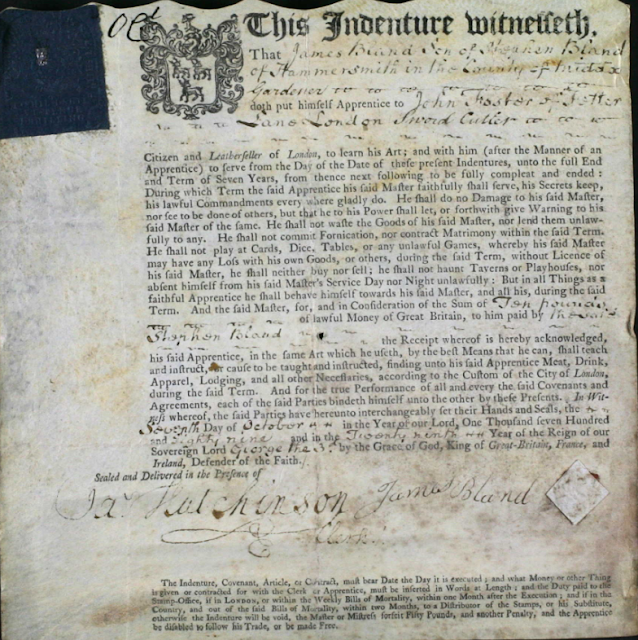 Oct
This Indenture witnesseth,
That James Bland Son of Stephen Bland
of Hammersmith in the County of Middx
Gardener
doth put himself Apprentice to John Foster of Fetter
Lane London Sword Cutler
Citizen and Leatherseller of London, to learn his Art; and with him (after the Manner of an
Apprentice) to serve from the Day of the Date of these present Indentures, unto the full End
and Term of Seven Years, from thence next following to be fully compleat and ended:
During which Term the said Apprentice his said Master faithfully shall serve, his Secrets keep,
his lawful Commandments every where gladly do. He shall do no Damage to his said Master,
nor see to be done of others, but that he to his Power shall let, or forthwith give Warning to his
said Master of the same. He shall not waste the Goods of his said Master, nor lend them unlaw-
fully to any. He shall not commit Fornication, nor contract Matrimony within the said Term.
He shall not play at Cards, Dice, Tables, or any unlawful Games, whereby his said Master
may have any Loss with his own Goods, or others, during the said Term, without Licence of
his said Master, he shall neither buy nor sell; he shall not haunt Taverns or Playhouses, nor
absent himself from his said Master's Service Day nor Night unlawfully: But in all Things as a
faithful Apprentice he shall behave himself towards his said Master, and all his, during the said
Term. And the said Master, for, and in Consideration of the Sum of Ten pounds
of lawful Money of Great Britain, to him paid by the said
Stephen Bland
the Receipt whereof is hereby acknowledged,
his said Apprentice, in the same Art which he useth, by the best Means that he can, shall teach
and instruct, or cause to be taught and instructed, finding unto his said Apprentice Meat, Drink,
Apparel, Lodging, and all other Necessaries, according to the Custom of the City of London,
during the said Term. And for the true Performance of all and every the said Covenants and
Agreements, each of the said Parties bindeth himself unto the other by these Presents. In Wit-
ness whereof, the said Parties have hereunto interchangeably set their Hands and Seals, the
Seventh Day of October in the Year of our Lord, One Thousand seven Hundred
and Eighty nine and in the Twenty ninth Year of the Reign of our
Sovereign Lord George the 3d by the Grace of God, King of Great-Britain, France, and
Ireland, Defender of the Faith.
Sealed and Delivered in the Presence of
Jas Hutchinson James Bland
Clerk
The Indenture, Covenant, Article, or Contract, must bear Date the Day it is executed; and what Money or other Thing
is given or contracted for with the Clerk or Apprentice, must be inserted in Words at Length; and the Duty paid to the
Stamp-Office, if in LONDON, or within the Weekly Bills of Mortality, within one Month after the Execution; and if in the
Country, and out of the said Bills of Mortality, within two Months, to a Distributor of the Stamps, or his Substitute,
otherwise the Indenture will be void, the Master or Mistress forfeit Fifty Pounds, and another Penalty, and the Apprentice
be disabled to follow his Trade, or be made Free.